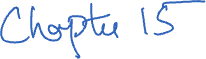 Chapter 15